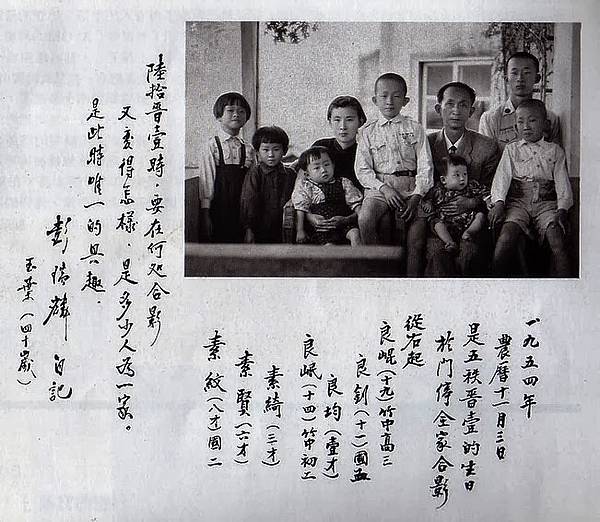 一九五四年
農曆十一月三日
是五秩晉壹的生日
於門停全家合影
從右起
良崐(十九)竹中高三
良釗(十一)國五
良均(壹才)
良岷(十四)竹中初二
素綺(三才)
素賢(六才)
素紋(八才)國二
陸拾晉壹時，要在何処合影
又变得怎樣，是多少人為一家。
是此時唯一的興趣．
彭瑞麟 自記
玉葉(四十歲)